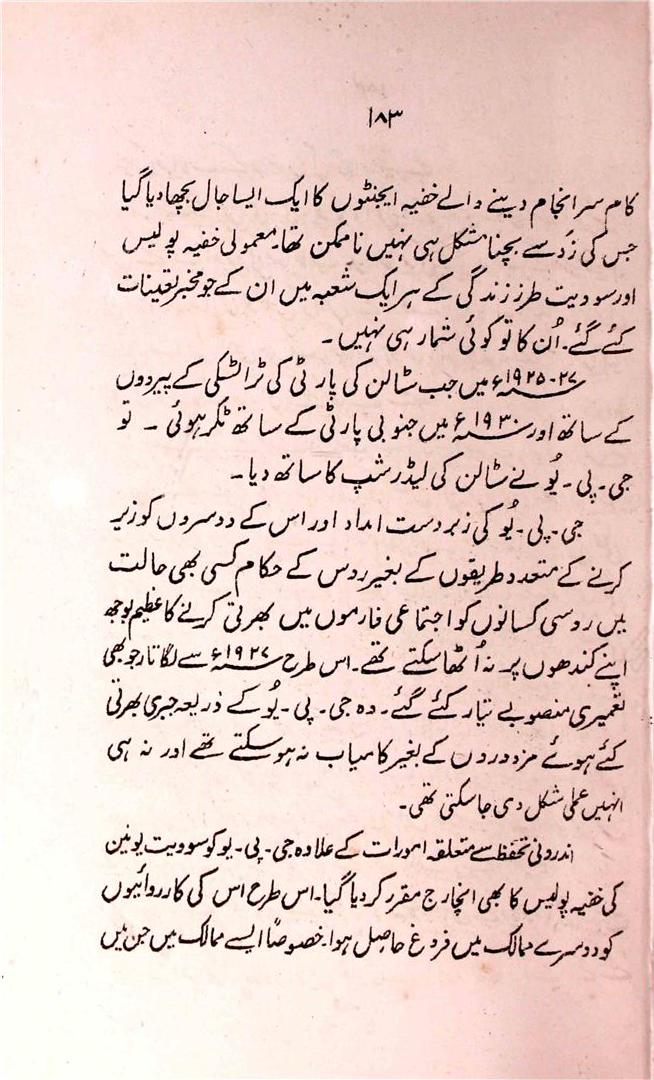 ۱۸۳
کام سر انجام دینے والے خفیہ ایجنٹوں کا ایک ایسا جال بچھا دیا گیا
جس کی زد سے بچنا مشکل ہی نہیں ناممکن تھا۔ معمولی خفیہ پولیس
اور سوویت طرز زندگی کے ہر ایک شعبہ میں ان کے جو مخبر تعینات
کئے گئے۔ اُن کا تو کوئی شمار ہی نہیں۔
۲۷-۱۹۲۵ء میں جب سٹالن کی پارٹی کی ٹراٹسکی کے پیروں
کے ساتھ اور ۱۹۳۰ء میں جنوبی پارٹی کے ساتھ ٹکر ہوئی ۔ تو
جی۔ پی۔ یُو نے سٹالن کی لیڈر شپ کا ساتھ دیا۔
جی۔ پی۔ یُو کی زبردست امداد اور اس کے دوسروں کو زیر
کرنے کے متعدد طریقوں کے بغیر روس کے حکام کسی بھی حالت
میں روسی کسانوں کو اجتماعی فارموں میں بھرتی کرنے کا عظیم بوجھ
اپنے کندھوں پر نہ اُٹھا سکتے تھے۔ اس طرح ۱۹۲۷ء سے لگاتار جو بھی
تعمیری منصوبے تیار کئے گئے۔ وہ جی۔ پی۔ یُو کے ذریعہ جبری بھرتی
کئے ہوئے مزدوروں کے بغیر کامیاب نہ ہو سکتے تھے اور نہ ہی
انہیں عملی شکل دی جا سکتی تھی۔
اندرونی تحفظ سے متعلقہ امورات کے علاوہ جی۔ پی۔ یو کو سوویت یونین
کی خفیہ پولیس کا بھی انچارج مقرر کر دیا گیا۔ اس طرح اس کی کارروائیوں
کو دوسرے ممالک میں فروغ حاصل ہوا۔ خصوصاً ایسے ممالک میں جن میں